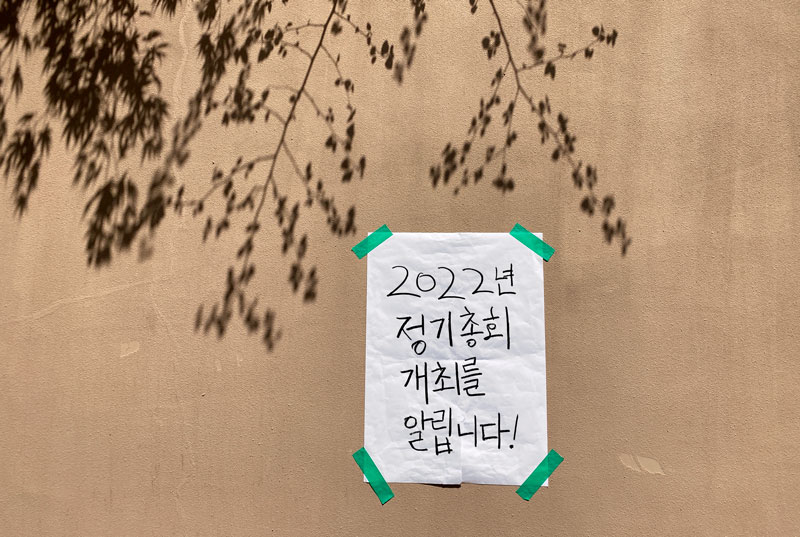 2022년
정기총회
개최를
알립니다!